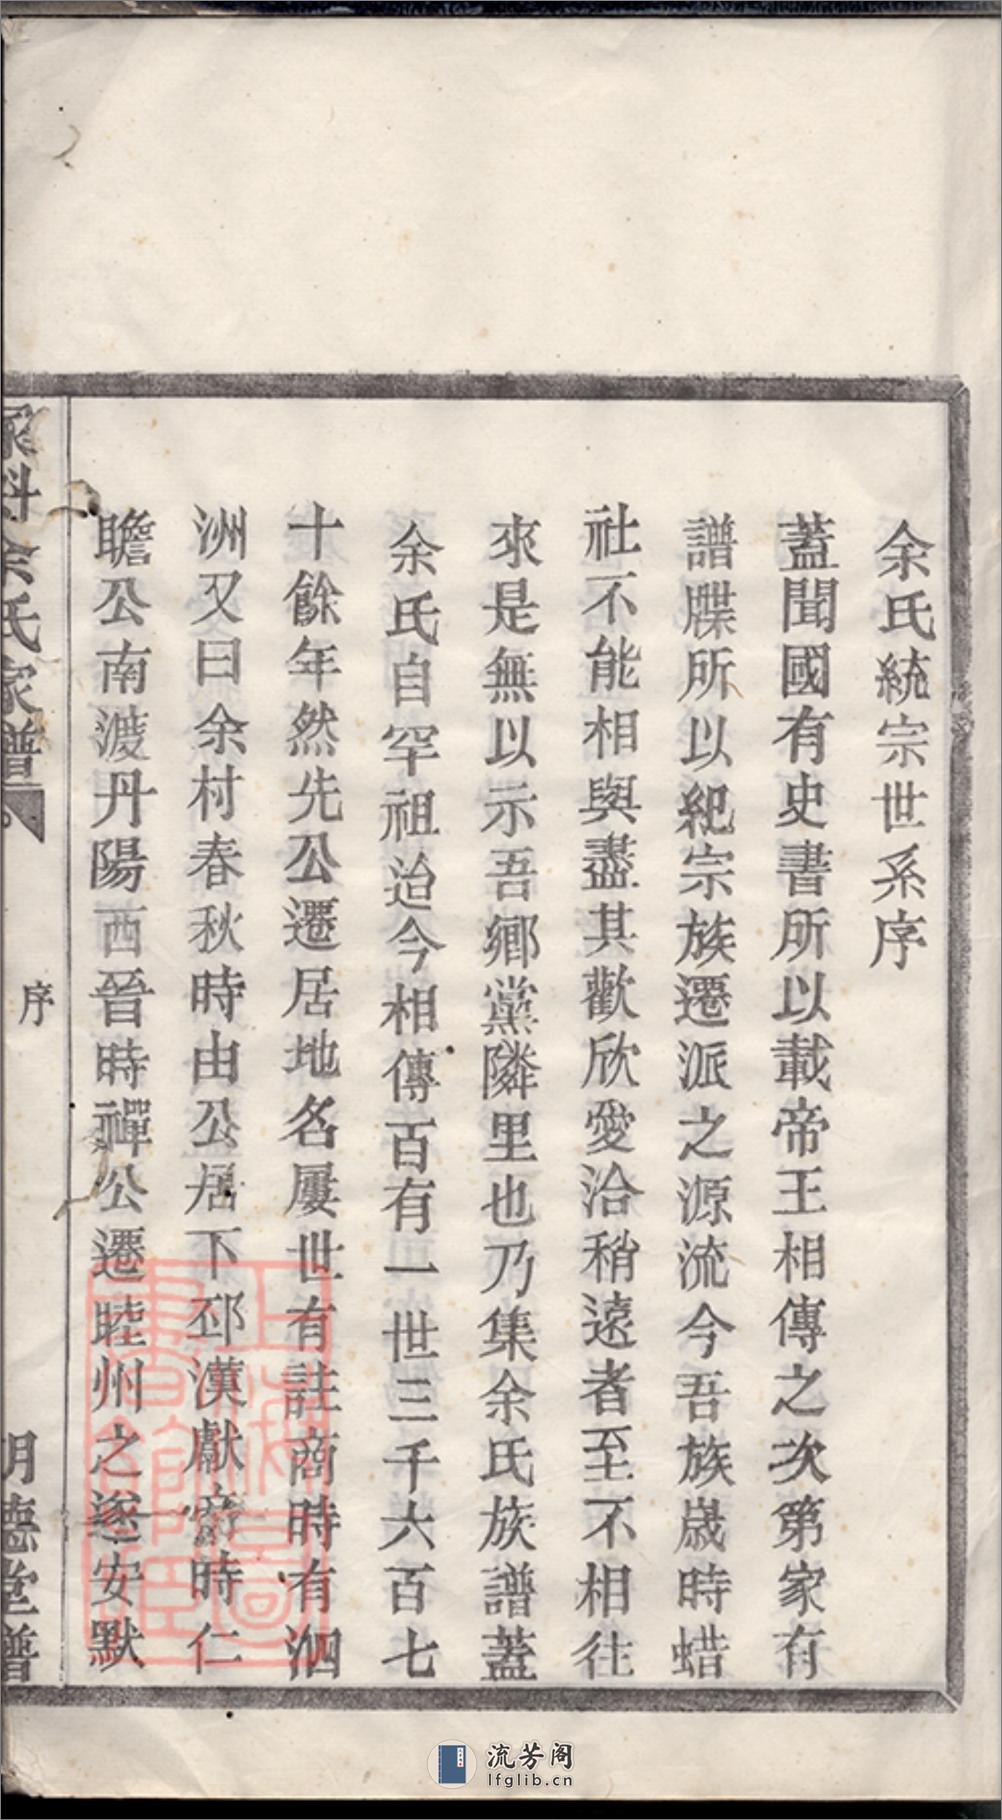 余氏統宗世系序
蓋聞國有史書所以載帝王相傳之次第家有
譜牒所以紀宗族遷派之源流今吾族歲時蜡
社不能相與盡其歡欣愛洽稍遠者至不相往
來是無以示吾鄉黨隣里也乃集余氏族譜蓋
余氏自罕祖迨今相傳百有一世三千六百七
十餘年然先公遷居地名屢世有註商時有泗
洲又曰余村春秋時由公居下邳漢獻帝時仁
瞻公南渡丹陽西晉時禪公遷睦州之遂安默
余氏家譜
序
明德堂譜
上海圖書館藏
流芳阁
lfglib.cn